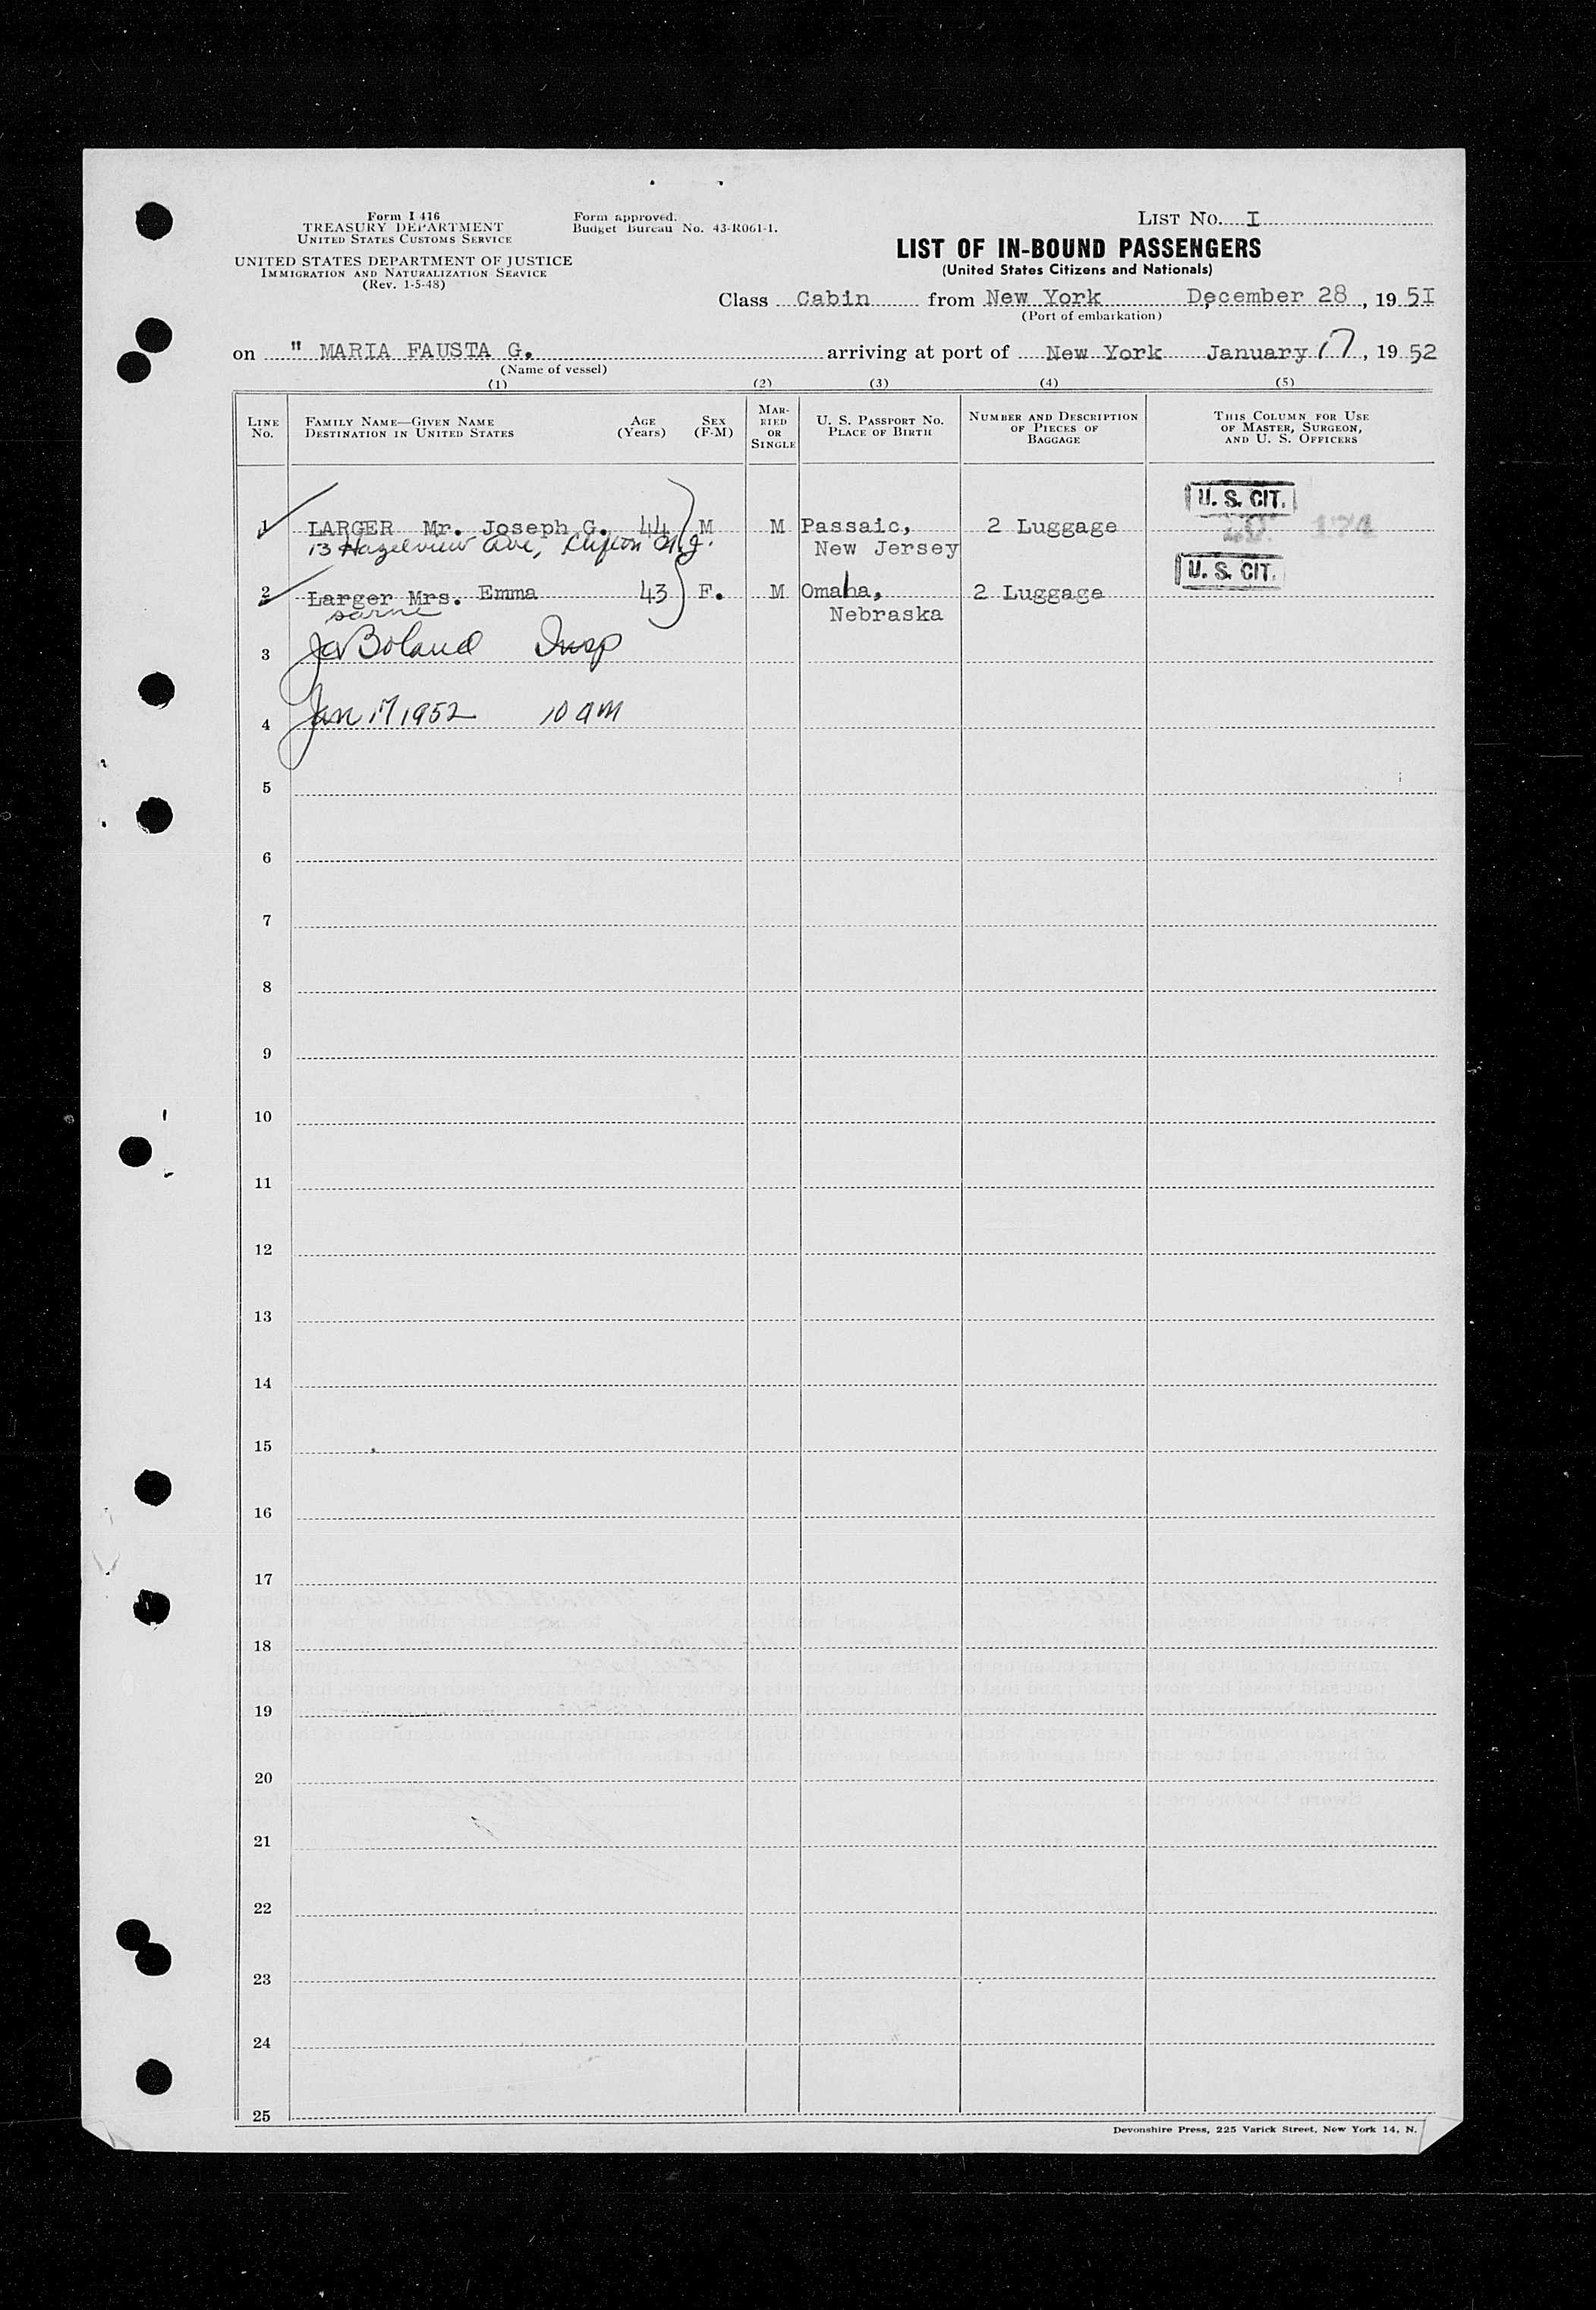 Form I 416
TREASURY DEPARTMENT
UNITED STATES CUSTOMS SERVICE
UNITED STATES DEPARTMENT OF JUSTICE
IMMIGRATION AND NATURALIZATION SERVICE
(Rev. 1-5-48)
Form approved.
Budget Bureau No. 43-R061-1.
LIST NO. I
LIST OF IN-BOUND PASSENGERS
(United States Citizens and Nationals)
Class Cabin from New York December 28, 1951
(Port of embarkation)
on " MARIA FAUSTA G. arriving at port of New York January 17, 1952
(Name of vessel)
(1) (2) (3) (4) (5)
LINE No. FAMILY NAME—GIVEN NAME DESTINATION IN UNITED STATES AGE (Years) SEX (F-M) MARRIED OR SINGLE U. S. PASSPORT NO. PLACE OF BIRTH NUMBER AND DESCRIPTION OF PIECES OF BAGGAGE THIS COLUMN FOR USE OF MASTER, SURGEON, AND U. S. OFFICERS
U. S. CIT.
1 LARGER Mr. Joseph G. 44 M M Passaic, 2 Luggage 174
13 Hazelview Ave, Clifton N.J. New Jersey
U. S. CIT.
2 Larger Mrs. Emma 43 F. M Omaha, 2 Luggage
same Nebraska
3 Boland Insp
4 Jan 17 1952 10 am
5
6
7
8
9
10
11
12
13
14
15
16
17
18
19
20
21
22
23
24
25
Devonshire Press, 225 Varick Street, New York 14, N.